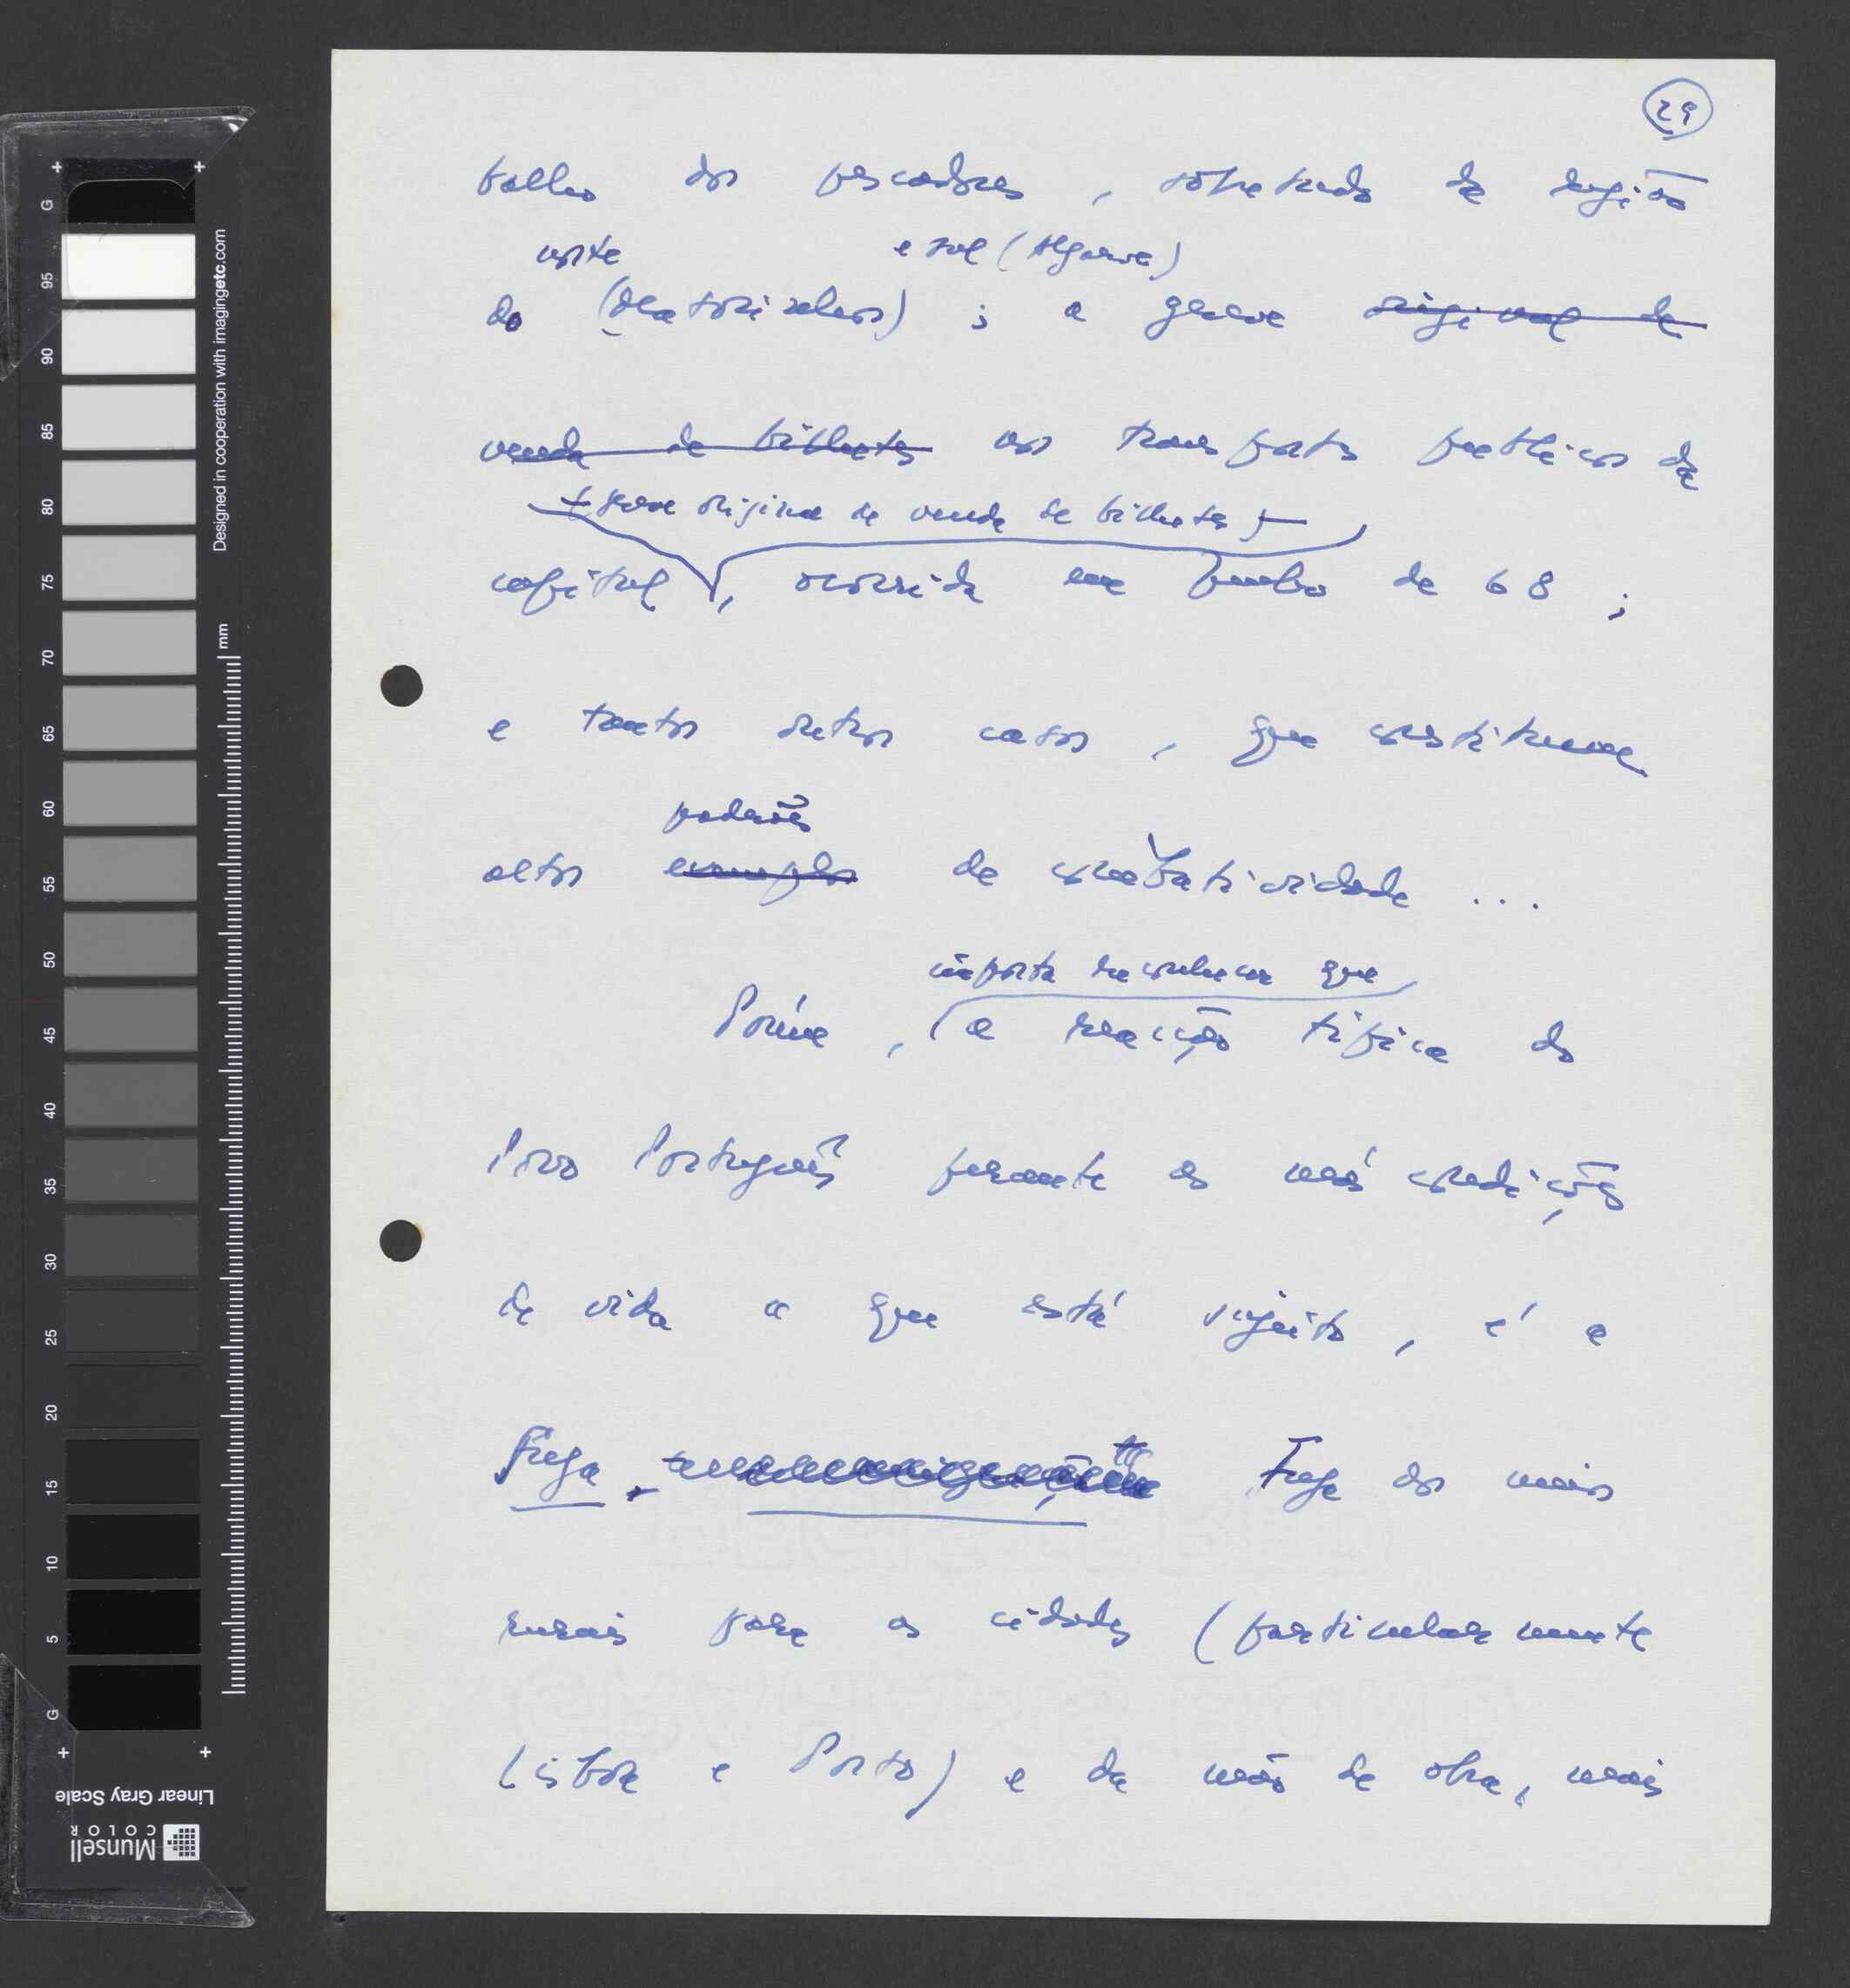 29
balho dos pescadores, sobretudo da região
norte e sul (Algarve)
do (Matosinhos); a greve original de
venda de bilhetes nos transportes publicos da
(greve original de venda de bilhetes)
capital, ocorrida em Junho de 68;
e tantos outros casos, que constituem
padrões
altos exemplos de combatividade ...
importa reconhecer que
Porém, a reacção tipica do
Povo Português perante as más condições
de vida a que está sujeito, é a
Fuga. Fuga dos meios
rurais para as cidades (particularmente
Lisboa e Porto) e da mão de obra, mais
G 95 90 85 80 75 70 65 60 55 50 45 40 35 30 25 20 15 10 5 G
Designed in cooperation with imagingetc.com
mm
Linear Gray Scale
Munsell
COLOR